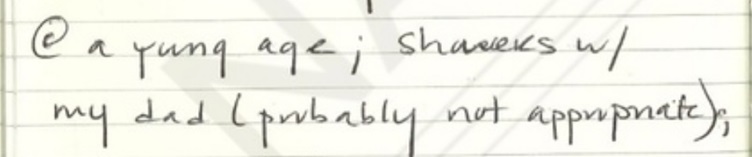 @ a yung age; showers w/
my dad (probably not appropriate);